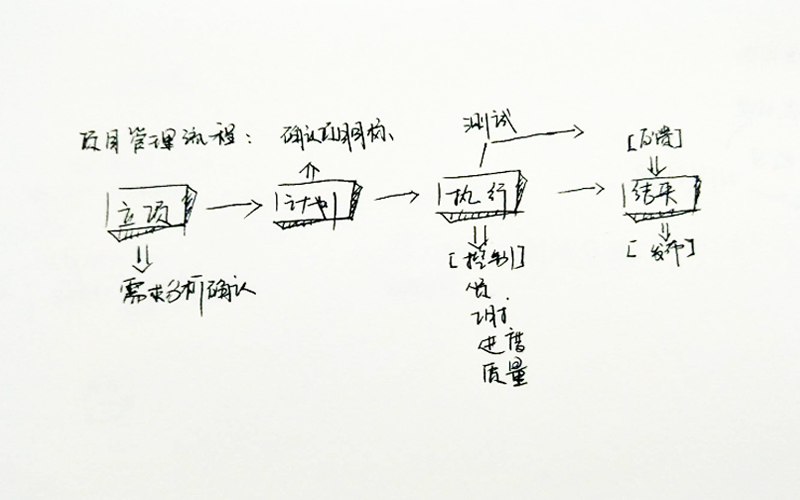 项目管理流程：
确认项目目标、
测试
[反馈]
立项
计划
执行
结束
需求分析确认
[控制]
[发布]
进度
质量